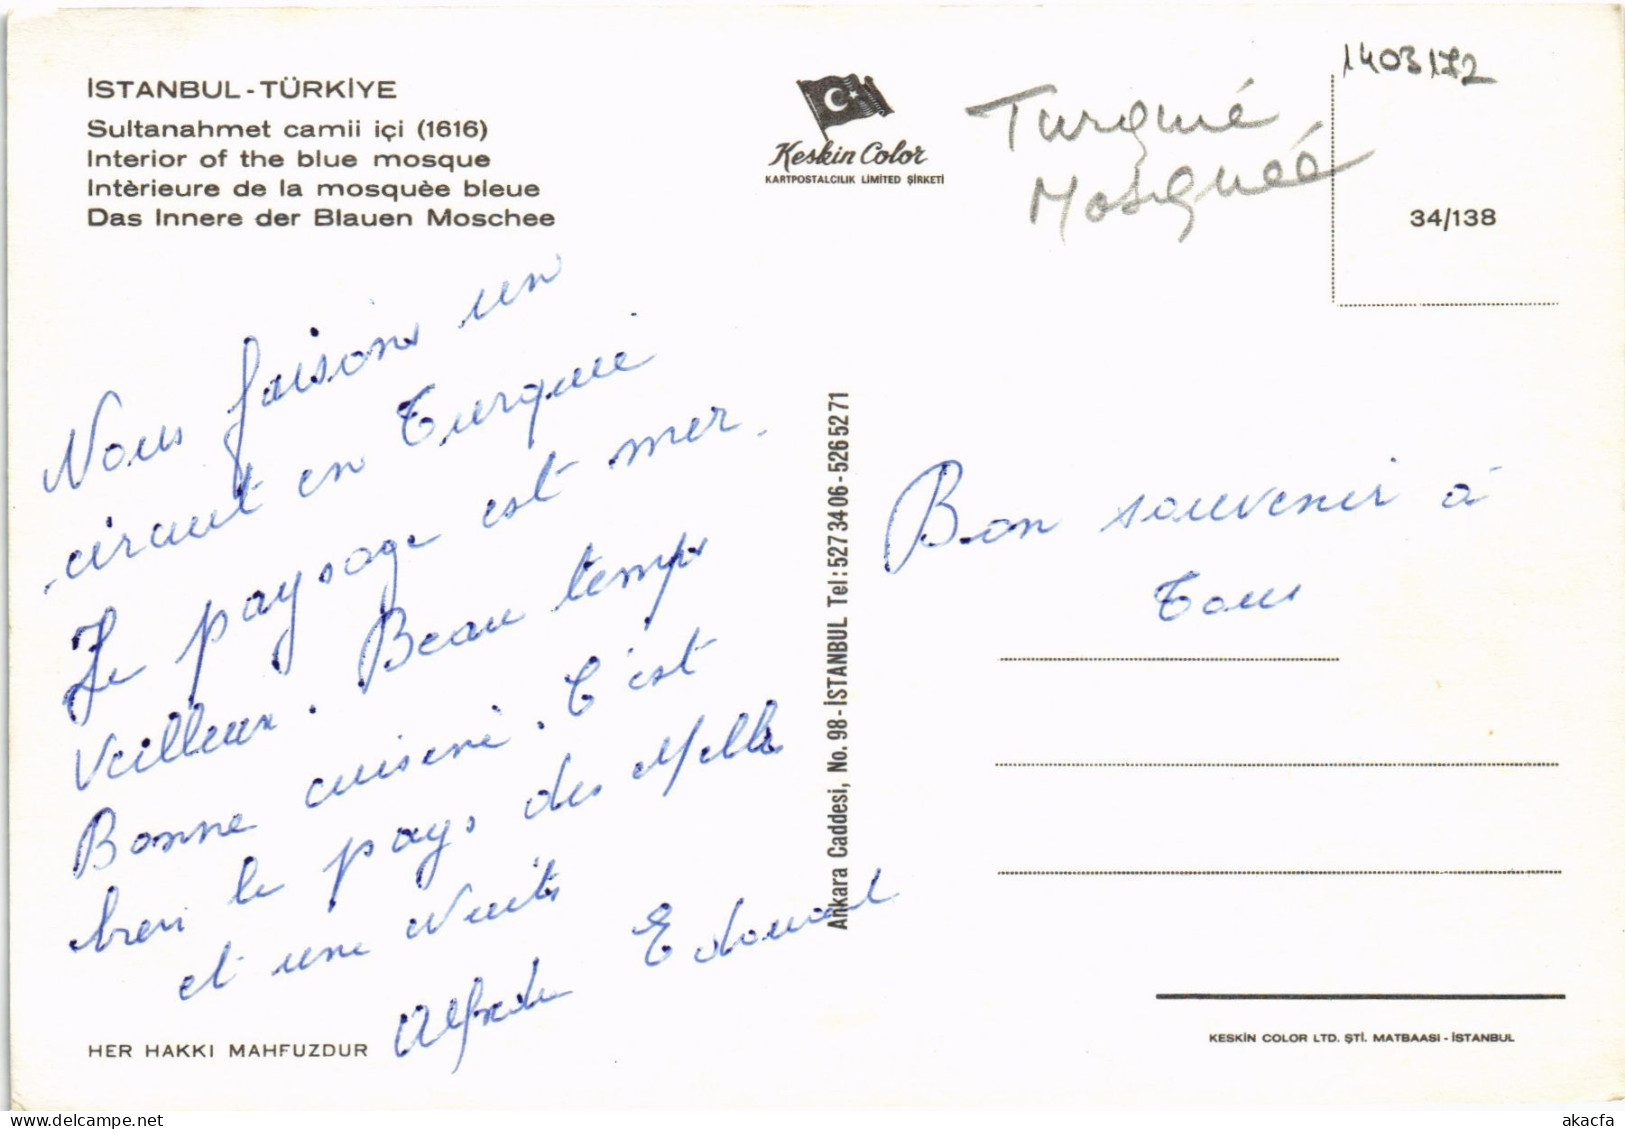 İSTANBUL - TÜRKİYE
Sultanahmet camii içi (1616)
Interior of the blue mosque
Intèrieure de la mosquèe bleue
Das Innere der Blauen Moschee
Keskin Color
KARTPOSTALCILIK LIMITED ŞİRKETİ
Turquié
Mosqueé
1403172
34/138
Nous faisons un
circuit en Turquie
Le paysage est mer.
veilleux. Beau temps
Bonne cuisine. C'est
bien le pays des Mille
et une Nuits
Alfrede Edouard
Ankara Caddesi, No. 98 - İSTANBUL Tel: 527 34 06 - 526 52 71
Bon souvenir à
tous
HER HAKKI MAHFUZDUR
KESKİN COLOR LTD. ŞTİ. MATBAASI - İSTANBUL
akacfa